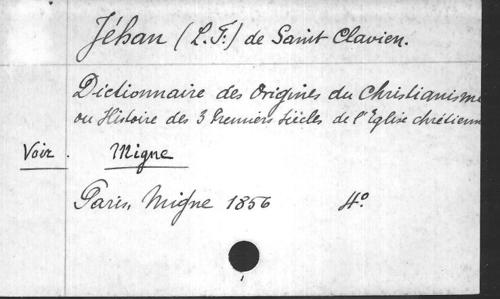 Jéhan (L. F.) de Saint Clavien.
Dictionnaire des Origines du Christianisme
ou Histoire des 3 Premiers Siècles de l'Eglise chrétienn
Voir. Migne
Paris, Migne 1856 4º